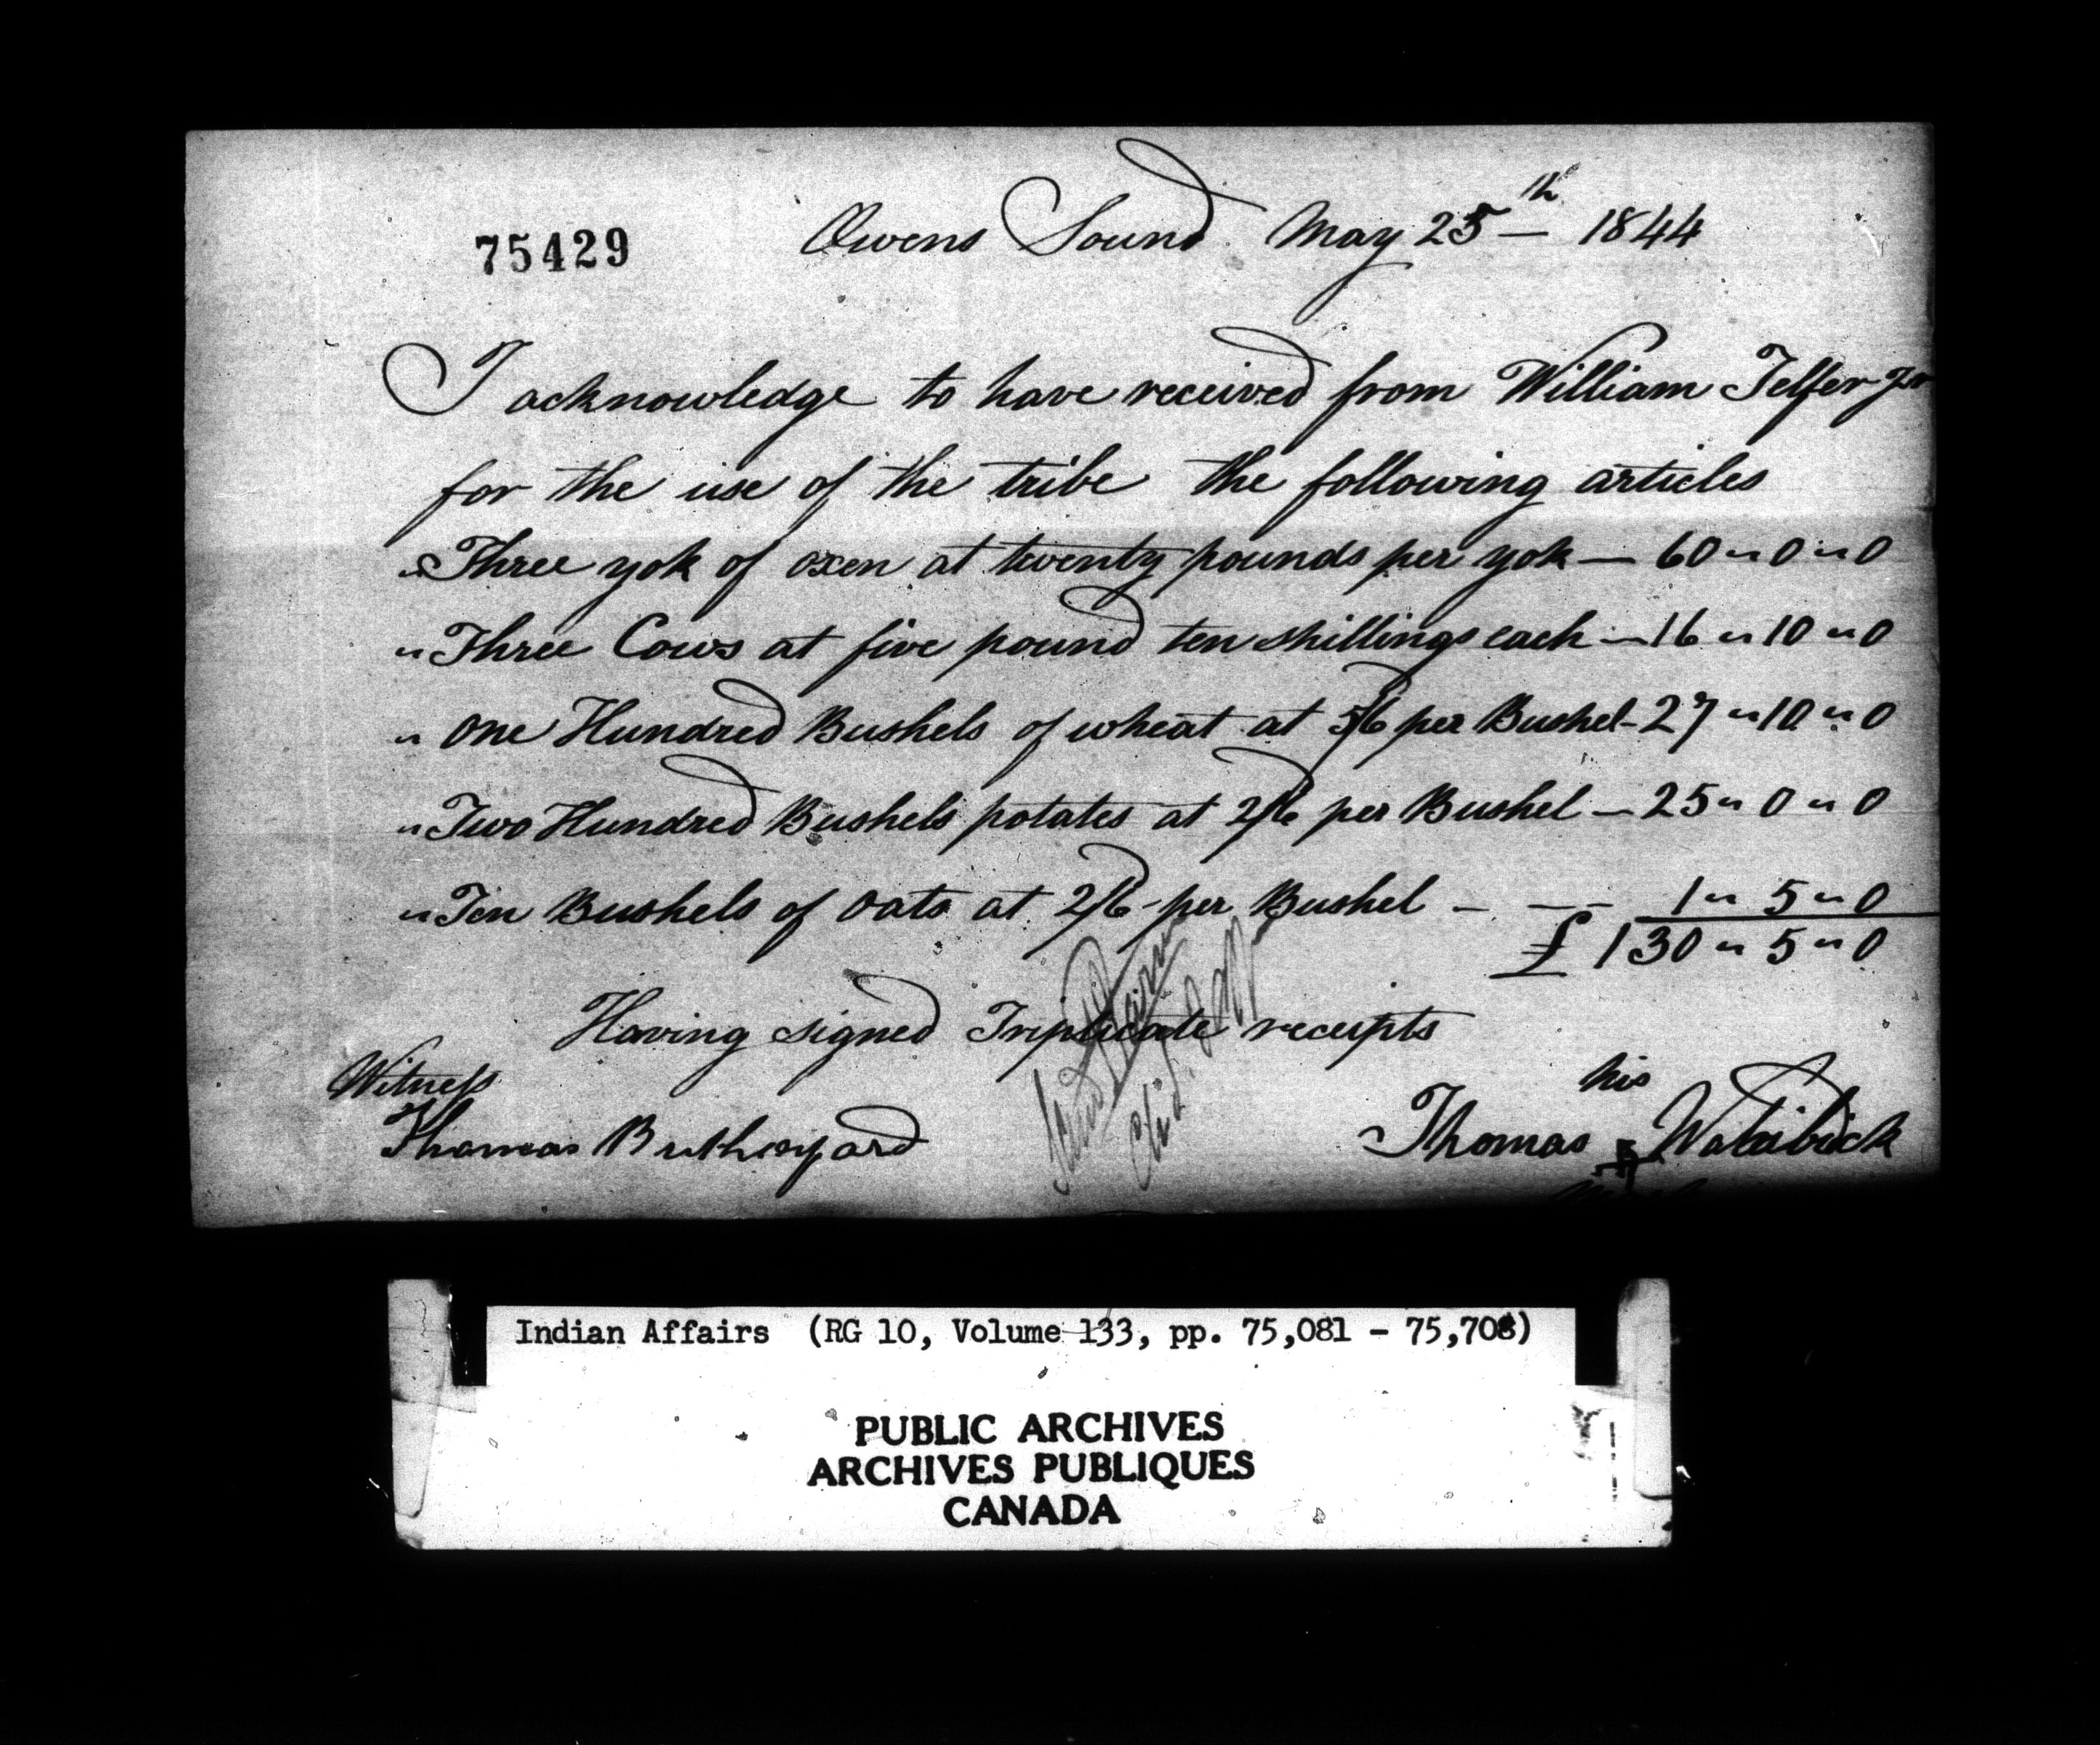 75429
Owens Sound May 25th 1844
I acknowledge to have received from William Telfer Jr
for the use of the tribe the following articles
" Three yok of oxen at twenty pounds per yok — 60 " 0 " 0
" Three Cows at five pound ten shillings each — 16 " 10 " 0
" One Hundred Bushels of wheat at 5/6 per Bushel - 27 " 10 " 0
" Two Hundred Bushels potates at 2/6 per Bushel — 25 " 0 " 0
" Ten Bushels of Oats at 2/6 per Bushel - — - 1 " 5 " 0
£ 130 " 5 " 0
Having signed Triplicate receipts
Witness
his
Thomas
Thomas
Indian Affairs (RG 10, Volume 133, pp. 75,081 - 75,708)
PUBLIC ARCHIVES
ARCHIVES PUBLIQUES
CANADA